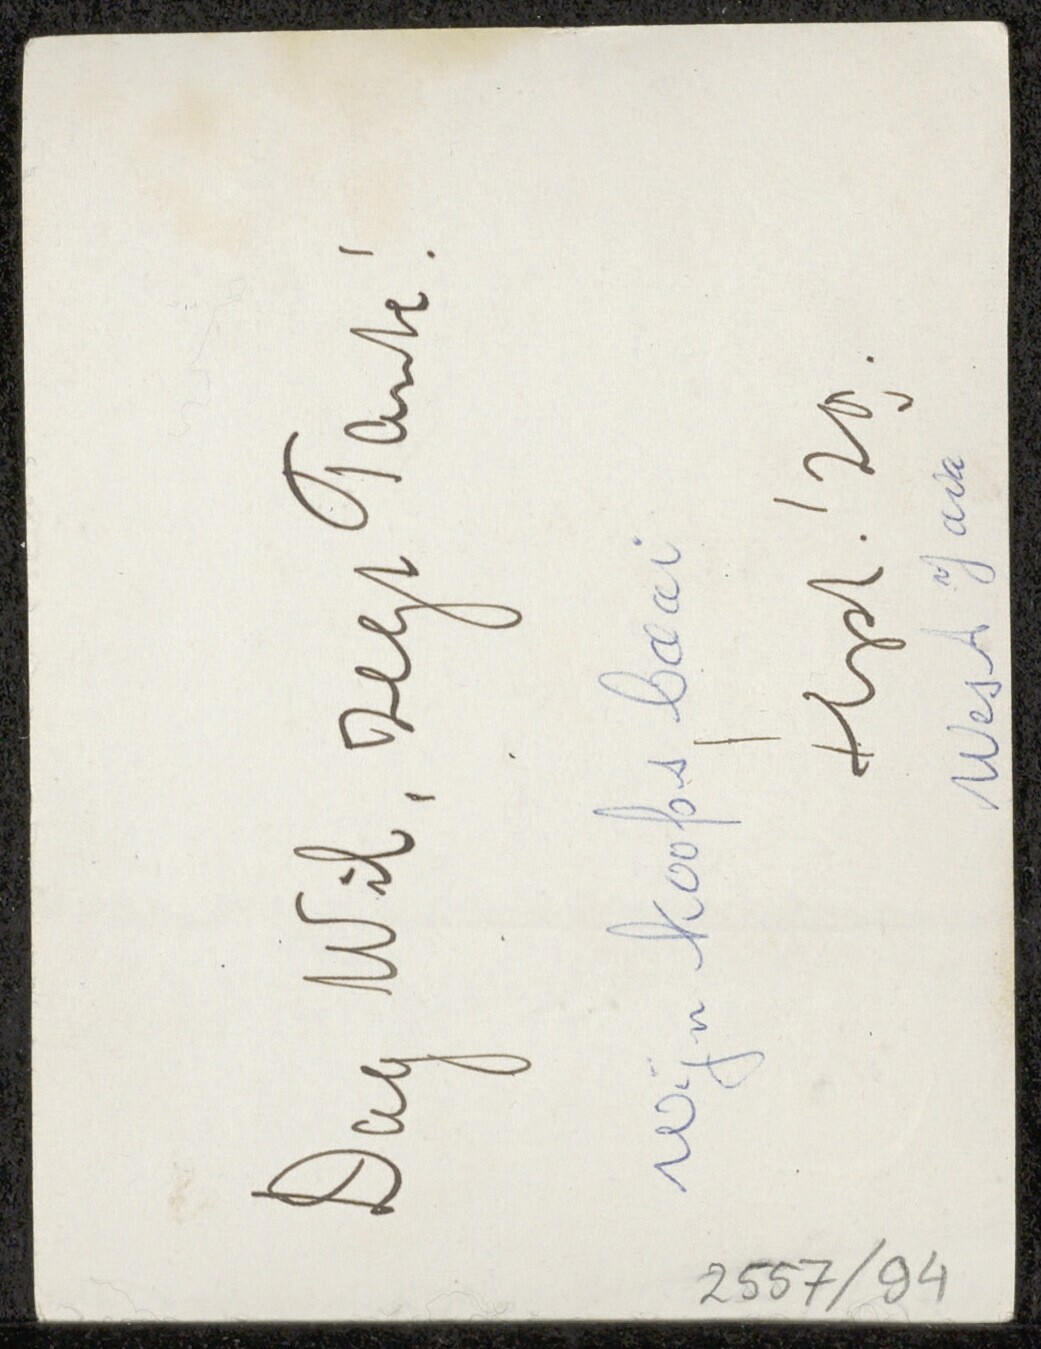 Dag Wil, zegt Tante!
Wijn koops baai
Hgst.! 29.
West Java
2557/94